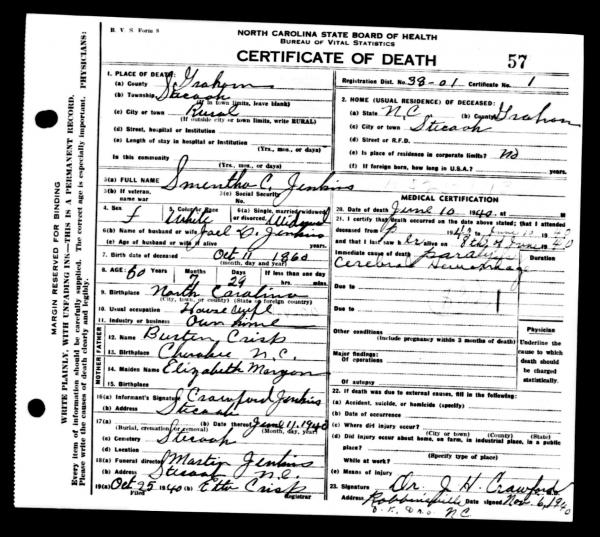 B. V. S Form 8
NORTH CAROLINA STATE BOARD OF HEALTH
BUREAU OF VITAL STATISTICS
CERTIFICATE OF DEATH
57
Registration Dist. No. 38-01 Certificate No. 1
MARGIN RESERVED FOR BINDING
WRITE PLAINLY, WITH UNFADING INK—THIS IS A PERMANENT RECORD.
Every item of information should be carefully supplied. The correct age is especially important. PHYSICIANS:
Please write the causes of death clearly and legibly.
1. PLACE OF DEATH:
(a) County Graham
(b) Township Stecoah
(If in town limits, leave blank)
(c) City or town Rural
(If outside city or town limits, write RURAL)
(d) Street, hospital or Institution
(e) Length of stay in hospital or Institution
(Yrs., mos., or days)
In this community
(Yrs., mos., or days)
2. HOME (USUAL RESIDENCE) OF DECEASED:
(a) State N.C (b) County Graham
(c) City or town Stecoah
(d) Street or R.F.D.
(e) Is place of residence in corporate limits? No
(f) If foreign born, how long in U.S.A.?
3(a) FULL NAME Smentha C. Jenkins
3(b) If veteran, name war
3(c) Social Security No.
4. Sex f
5. Color or Race White
6(a) Single, married, widowed or divorced. Widowed
6(b) Name of husband or wife Joel C. Jenkins
6(c) Age of husband or wife if alive
7. Birth date of deceased Oct 11 1860
(month, day and year)
8. AGE: 60 Years 7 Months 29 Days If less than one day hrs. mins.
9. Birthplace North Carolina
(City, town, or county) (State or foreign country)
10. Usual occupation House wife
11. Industry or business Own home
FATHER
12. Name Burton Crisp
13. Birthplace Cherokee N.C.
MOTHER
14. Maiden Name Elizabeth Morgan
15. Birthplace
16(a) Informant's Signature Crawford Jenkins
(b) Address Stecoah
17(a) (b) Date thereof June 11, 1940
(Burial, cremation, or removal) (Month, day, year)
(c) Cemetery Stecoah
(d) Location
18(a) Funeral director Martin Jenkins
(b) Address Stecoah N.C.
19(a) Oct 25 1940 (b) Etta Crisp
Filed Registrar
MEDICAL CERTIFICATION
20. Date of death June 10 1940, at m
21. I certify that death occurred on the date above stated; that I attended
deceased from
and that I last saw her alive on 8th of June 1940
Immediate cause of death Paralysis
Cerebral Hemorrhage
Due to
Due to
Other conditions
(Include pregnancy within 3 months of death)
Major findings:
Of operations
Of autopsy
Physician
Underline the cause to which death should be charged statistically.
22. If death was due to external causes, fill in the following:
(a) Accident, suicide, or homicide (specify)
(b) Date of occurrence
(c) Where did injury occur?
(City or town) (County) (State)
(d) Did injury occur about home, on farm, in industrial place, in a public place?
(Specify type of place)
While at work?
(e) Means of injury
23. Signature Dr. J. H. Crawford
Address Robbinsville Date signed Nov. 6, 1940
N.C.